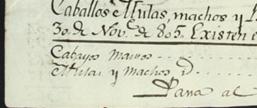 Caballos Mulas, machos y
30 de Nov.e de 805. Existen e
Cabayos Mansos
Mulas y Machos d.
Para al